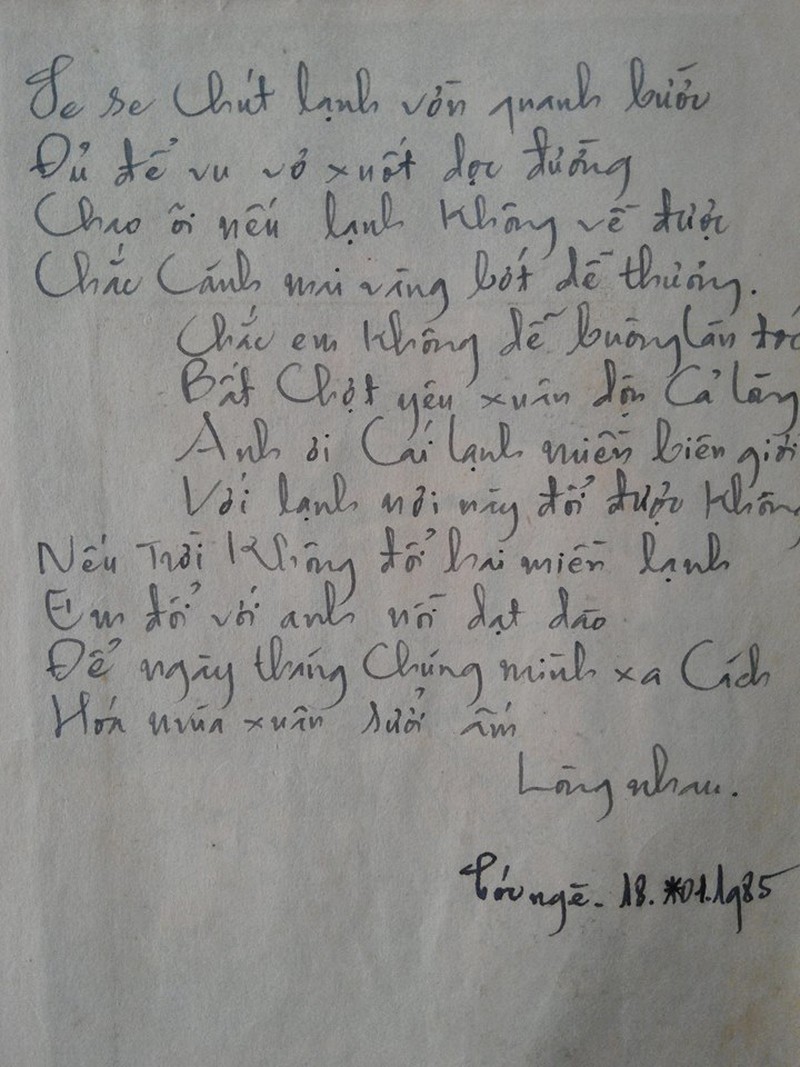 Se se chút lạnh vờn quanh bước
Đủ để vu vơ xuốt dọc đường
Chao ôi nếu lạnh không về được
Chắc cánh mai vàng bớt dễ thương.
Chắc em không dễ buông làn tóc
Bất chợt yêu xuân độn cả lòng
Anh ơi cái lạnh miền biên giới
Với lạnh nơi này đổi được không
Nếu trời không đổi hai miền lạnh
Em đổi với anh nỗi dạt dào
Để ngày tháng chúng mình xa cách
Hóa mùa xuân sưởi ấm
Lòng nhau.
18.01.1985